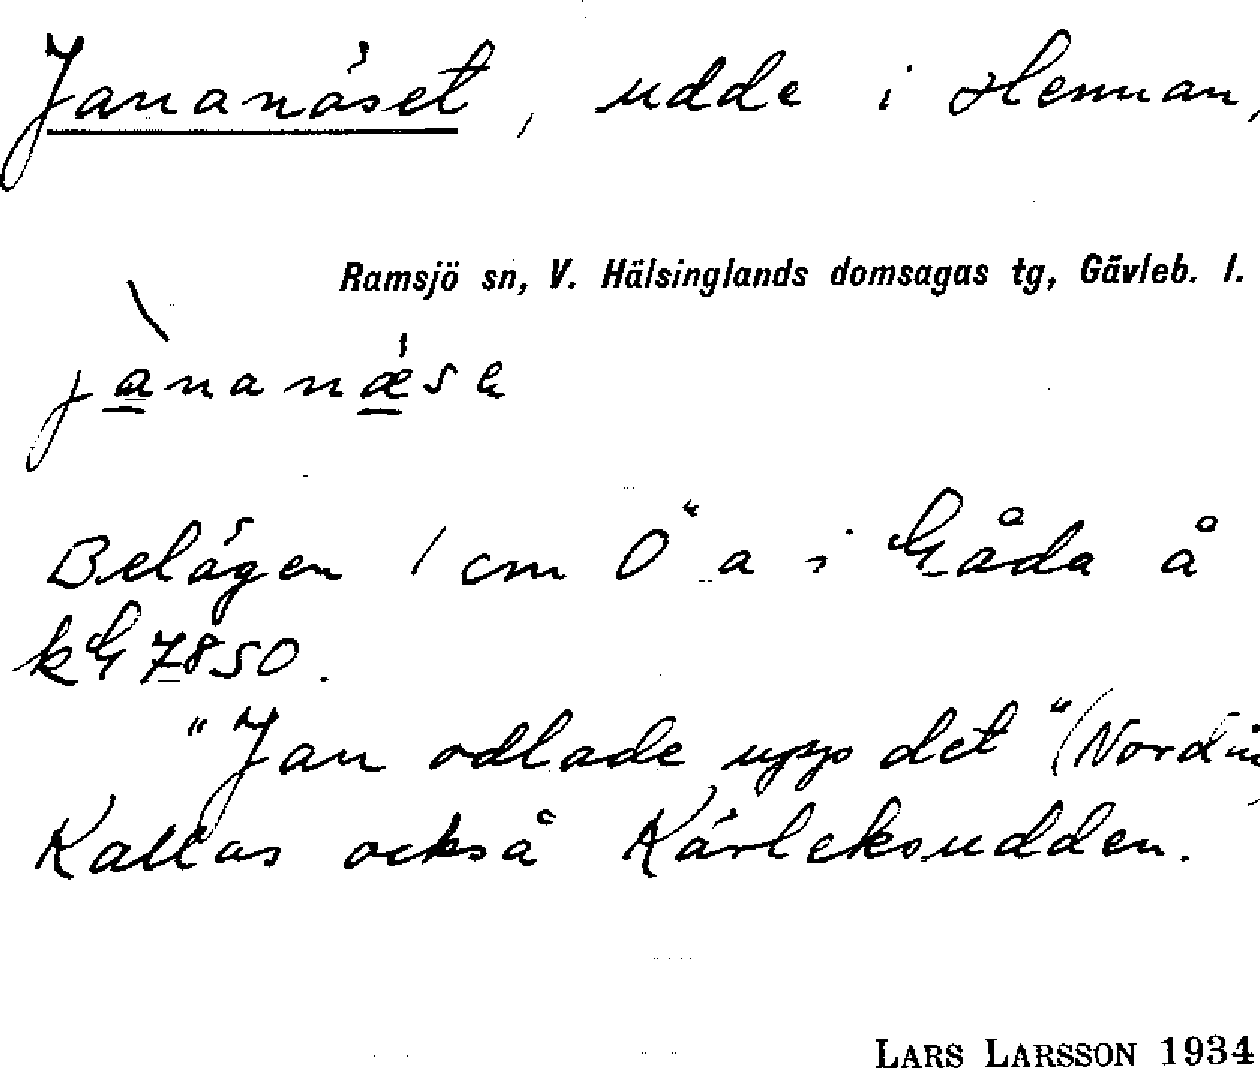 Jananäset, udde i Hennan,
Ramsjö sn, V. Hälsinglands domsagas tg, Gävleb. l.
jànanǽse
Belägen 1 cm O "a i Gåda å
kG 7850.
"Jan odlade upp det" (Nordin)
Kallas också Kärleksudden.
LARS LARSSON 1934